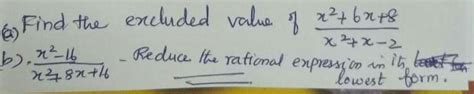 (a) Find the excluded value of (x²+6x+8)/(x²+x-2)
b). (x²-16)/(x²+8x+16) - Reduce the rational expression in its
lowest form.